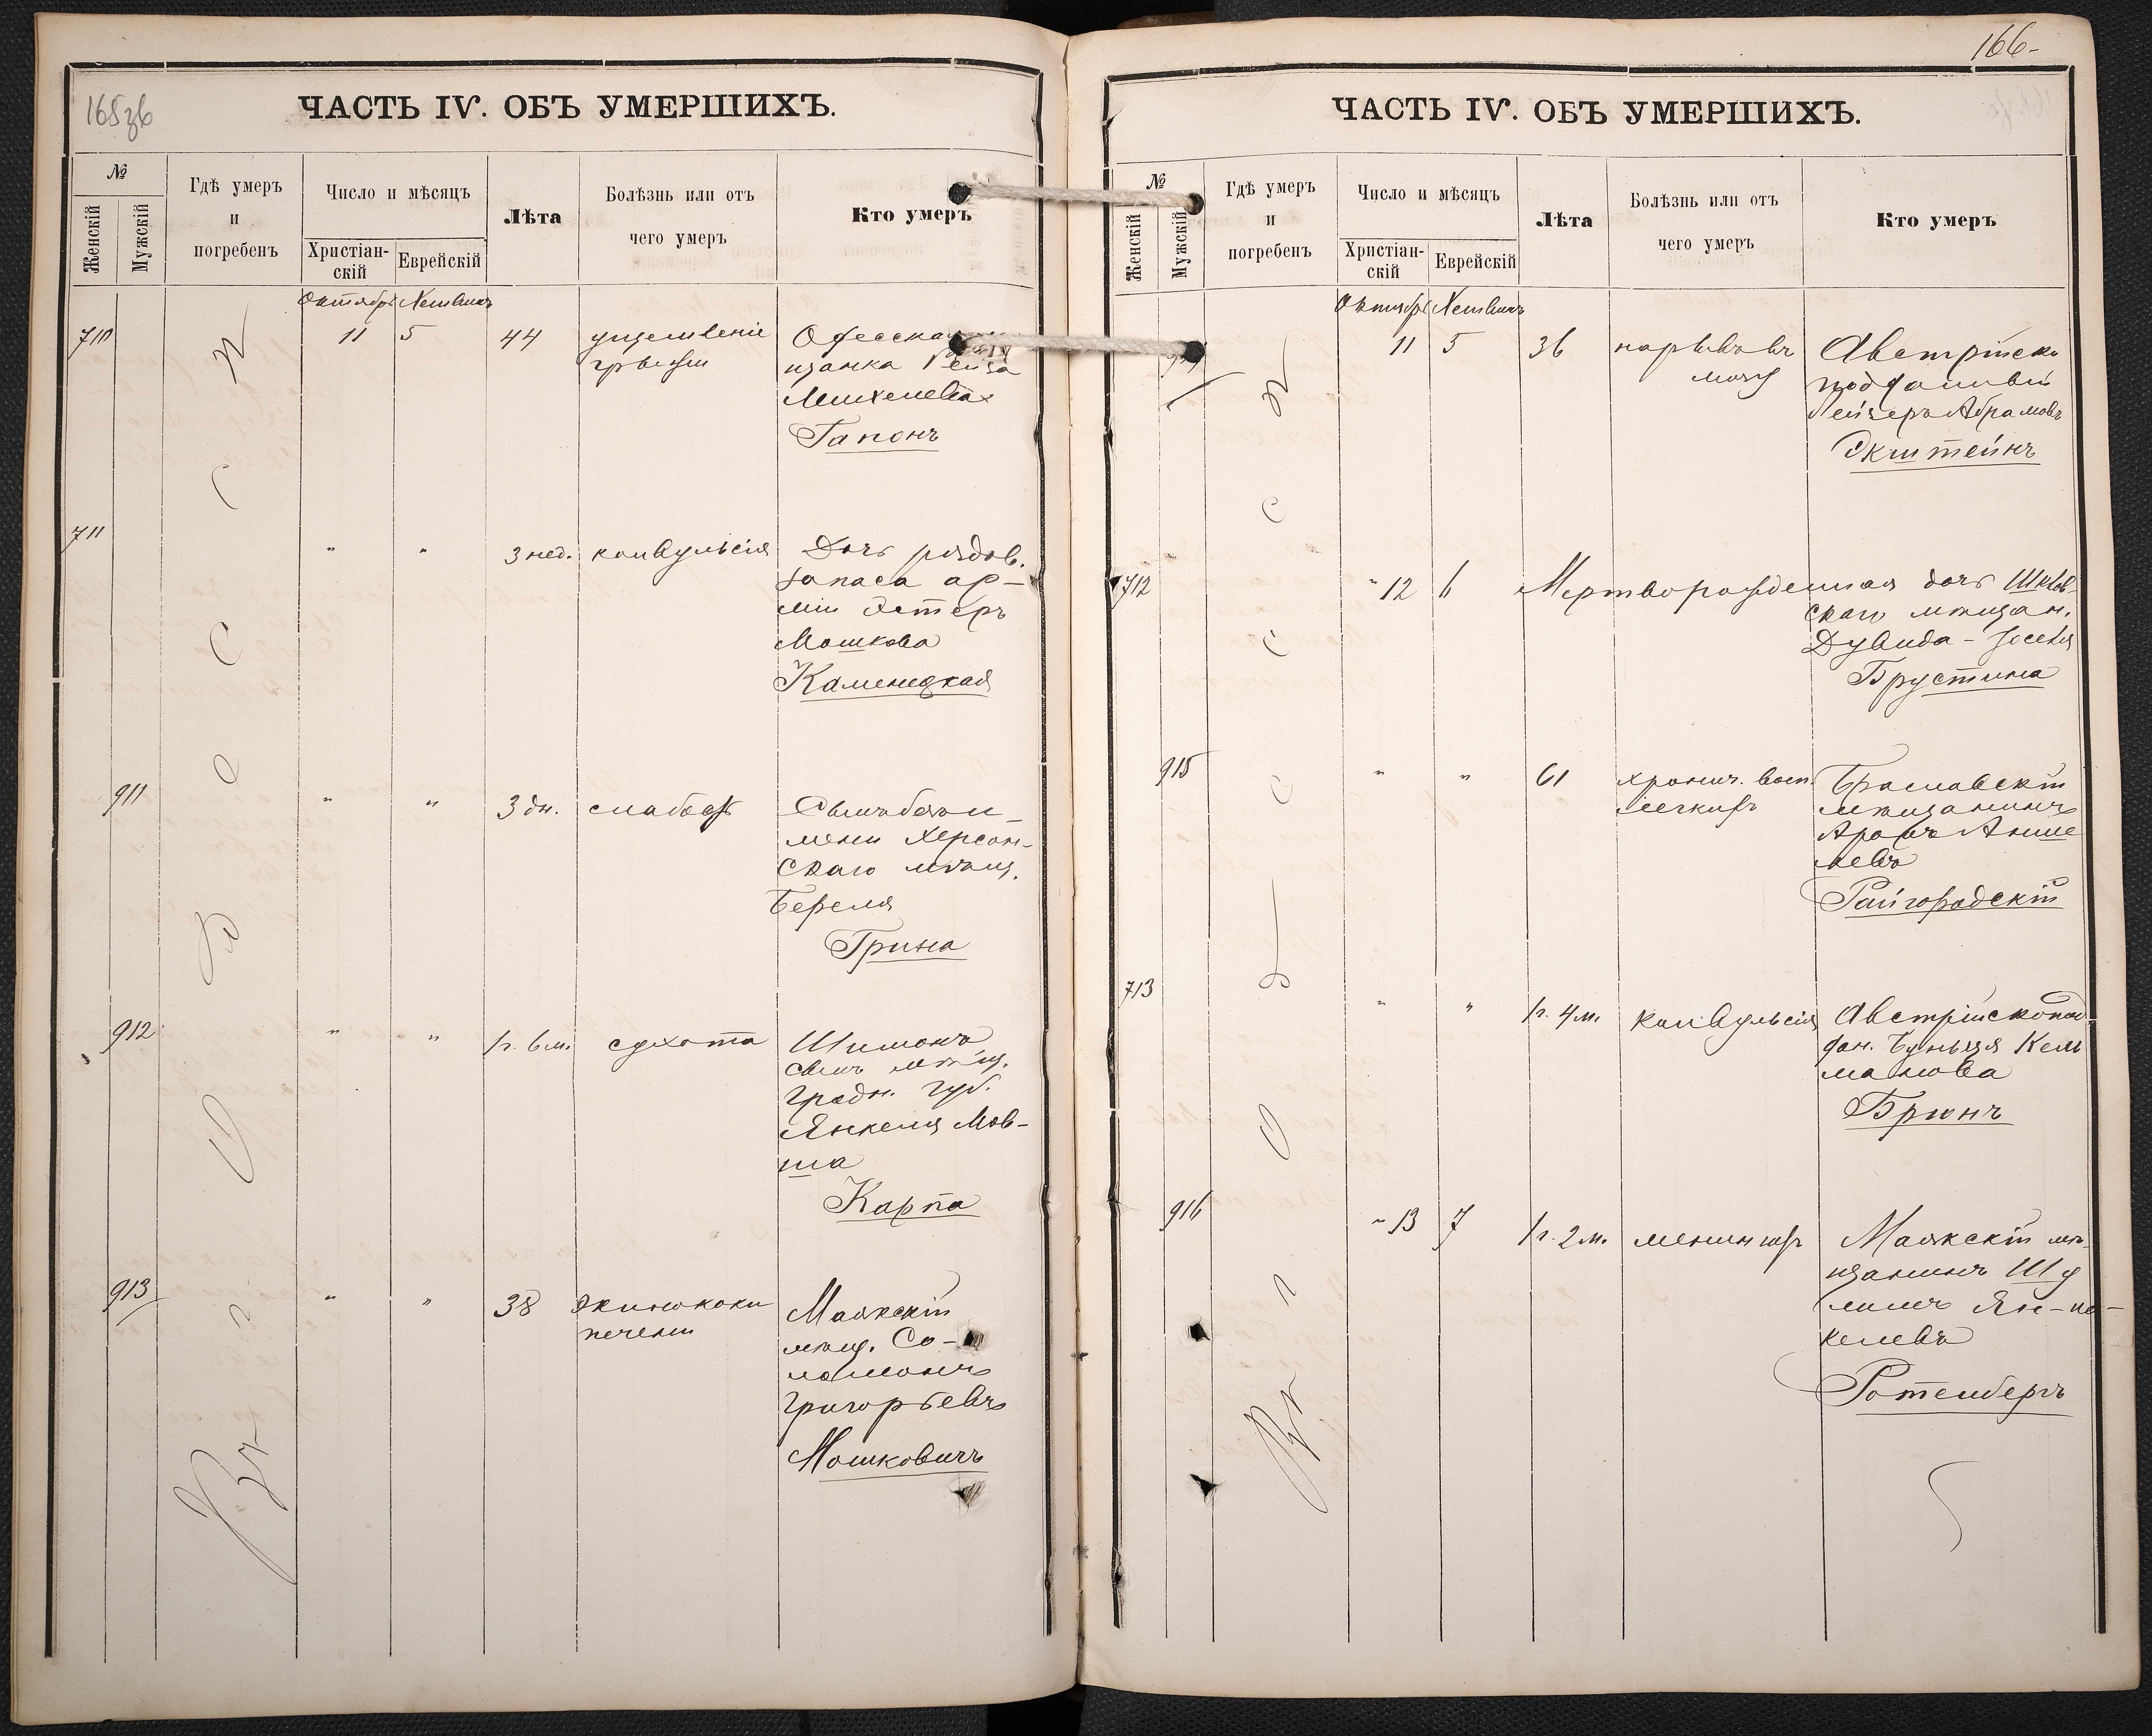 165 об
ЧАСТЬ IV. ОБЪ УМЕРШИХЪ.
№
Женскій
Мужскій
Гдѣ умеръ
и
погребенъ
Число и мѣсяцъ
Христіан-
скій
Еврейскій
Лѣта
Болѣзнь или отъ
чего умеръ
Кто умеръ
Октябрь Хешванъ
Въ г. Одессѣ
710 11 5 44 ущемленіе
грыжи
Одесская
щанка Рейза
Михелева
Гапонъ
711 " " 3 нед. конвульсія
Дочь рядов.
запаса ар-
міи Эстеръ
Мошкова
Каменецкая
911 " " 3 дн. слабость
Сынъ безъ и-
мени Херсон-
скаго мѣщ.
Береля
Грина
912 " " 1 г. 6 м. сухота
Шимонъ
сынъ мѣщ.
Гродн. губ.
Янкеля Мов-
ша
Карпа
913 " " 38 эхинококи
печени
Маякскій
мѣщ. Со-
ломонъ
Григорьевъ
Мошковичъ
166-
ЧАСТЬ IV. ОБЪ УМЕРШИХЪ.
№
Женскій
Мужскій
Гдѣ умеръ
и
погребенъ
Число и мѣсяцъ
Христіан-
скій
Еврейскій
Лѣта
Болѣзнь или отъ
чего умеръ
Кто умеръ
Октябрь Хешванъ
Въ г. Одессѣ
11 5 36 нарывъ въ
мозгу
Австрійско
подданный
Лейзеръ Абрамовъ
Экштейнъ
712 " 12 6 Мертворожденная дочь Шклов-
скаго мѣщан.
Дувида-Іоселя
Брустина
915 " " 61 хронич. восп.
легкихъ
Браславскій
мѣщанинъ
Аронъ Анше
левъ
Райгородскій
713 " " 1 г. 4 м. конвульсія
Австрійскопод
дан. Бунья Кель
манова
Брюнъ
916 " 13 7 1 г. 2 м. менингитъ
Маякскій мѣ-
щанинъ Шу
лимъ Ян-
келевъ
Ротенбергъ